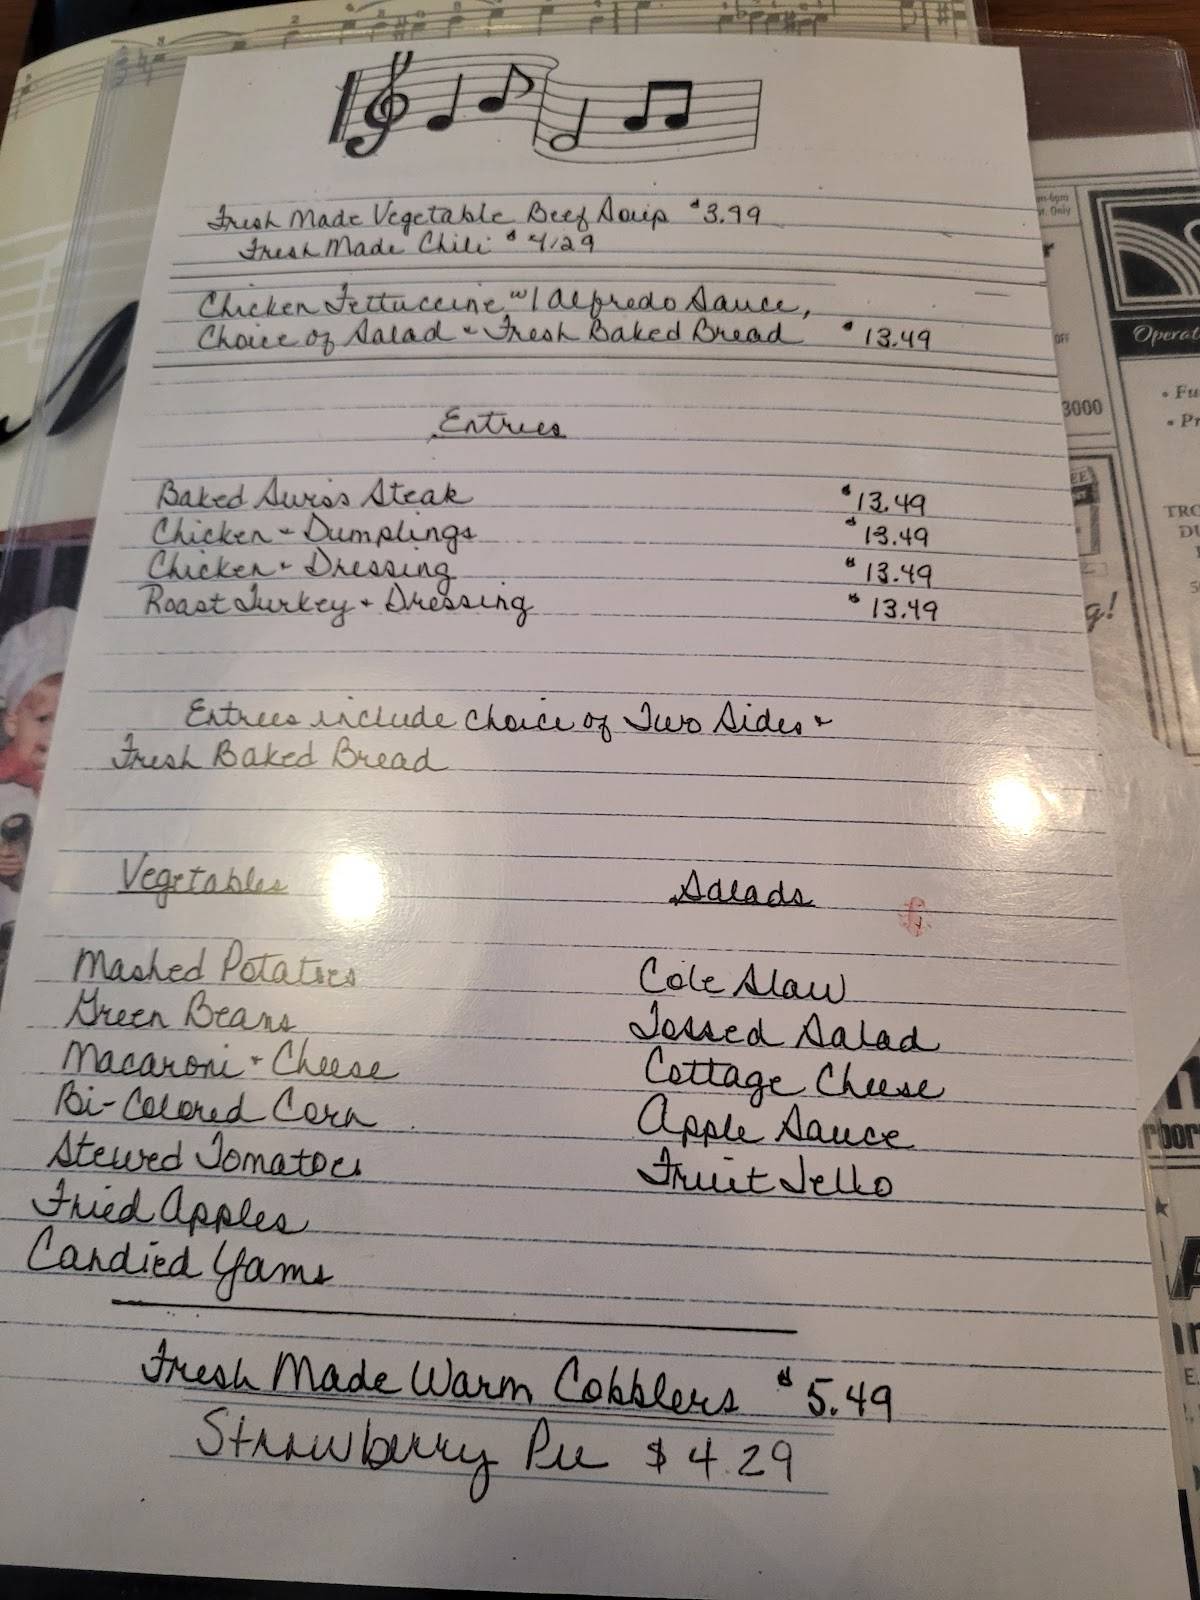 Fresh Made Vegetable Beef Soup $3.99
Fresh Made Chili $4.29
Chicken Fettuccine w/ Alfredo Sauce,
Choice of Salad & Fresh Baked Bread $13.49
Entrees
Baked Swiss Steak $13.49
Chicken & Dumplings $13.49
Chicken & Dressing $13.49
Roast Turkey & Dressing $13.49
Entrees include choice of Two Sides &
Fresh Baked Bread
Vegetables
Mashed Potatoes
Green Beans
Macaroni & Cheese
Bi-Colored Corn
Stewed Tomatoes
Fried Apples
Candied Yams
Salads
Cole Slaw
Tossed Salad
Cottage Cheese
Apple Sauce
Fruit Jello
Fresh Made Warm Cobblers $5.49
Strawberry Pie $4.29
3000